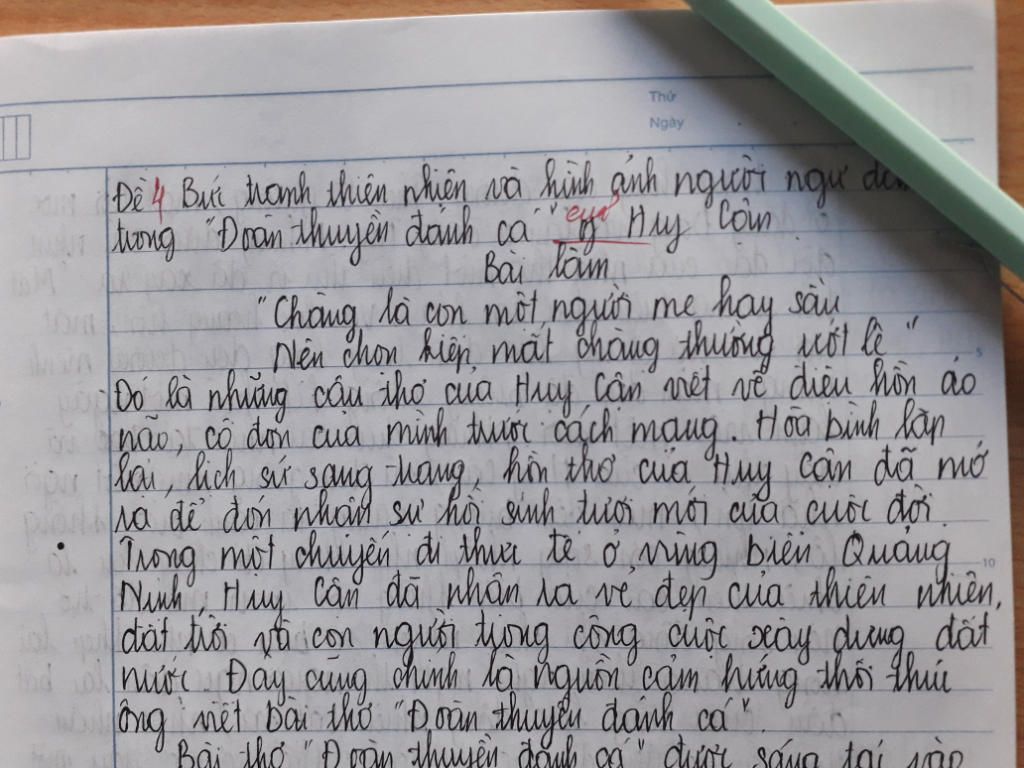 Thứ
Ngày
Đề 4 Bức tranh thiên nhiên và hình ảnh người ngư
trong "Đoàn thuyền đánh cá" của Huy Cận
Bài làm
"Chàng là con một người mẹ hay sầu
Nên chọn kiếp mắt chàng thường ướt lệ"
Đó là những câu thơ của Huy Cận viết về điệu hồn ảo
não, cô đơn của mình trước cách mạng. Hòa bình lập
lại, lịch sử sang trang, hồn thơ của Huy Cận đã mở
ra để đón nhận sự hồi sinh tươi mới của cuộc đời.
Trong một chuyến đi thực tế ở vùng biển Quảng
10
Ninh, Huy Cận đã nhận ra vẻ đẹp của thiên nhiên,
đất trời và con người trong công cuộc xây dựng đất
nước. Đây cũng chính là nguồn cảm hứng thôi thúc
ông viết bài thơ "Đoàn thuyền đánh cá".
Bài thơ "Đoàn thuyền đánh cá" được sáng tại vào